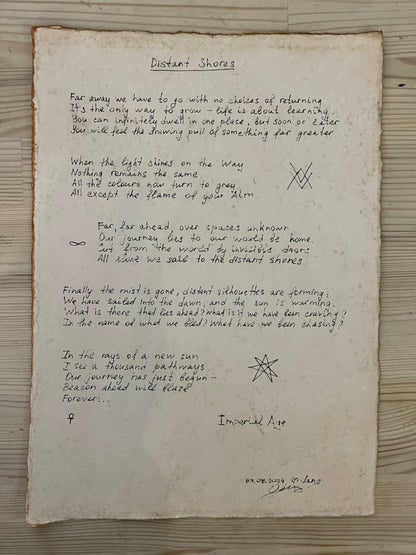 Distant Shores
Far away we have to go with no choices of returning
It's the only way to grow – life is about learning...
You can infinitely dwell in one place, but soon or later
You will feel the thuwing pull of something far greater
When the light shines on the Way
Nothing remains the same.
All the colours now turn to grey
All except the flame of your Aim.
Far, far ahead, over spaces unknown
Our journey lies to our would be home.
Cut from the world by invisious doors
All alone we sail to the distant shores.
∞
Finally the mist is gone, distant silhouettes are forming;
We have sailed into the dawn, and the sun is warming.
What is there that lies ahead? What is it we have been craving?
In the name of what we bled? What have we been chasing?
In the rays of a new sun
I see a thousand pathways.
Our journey has just begun –
Beacon ahead will blaze
Forever...
Imperial Age
2024
Jane